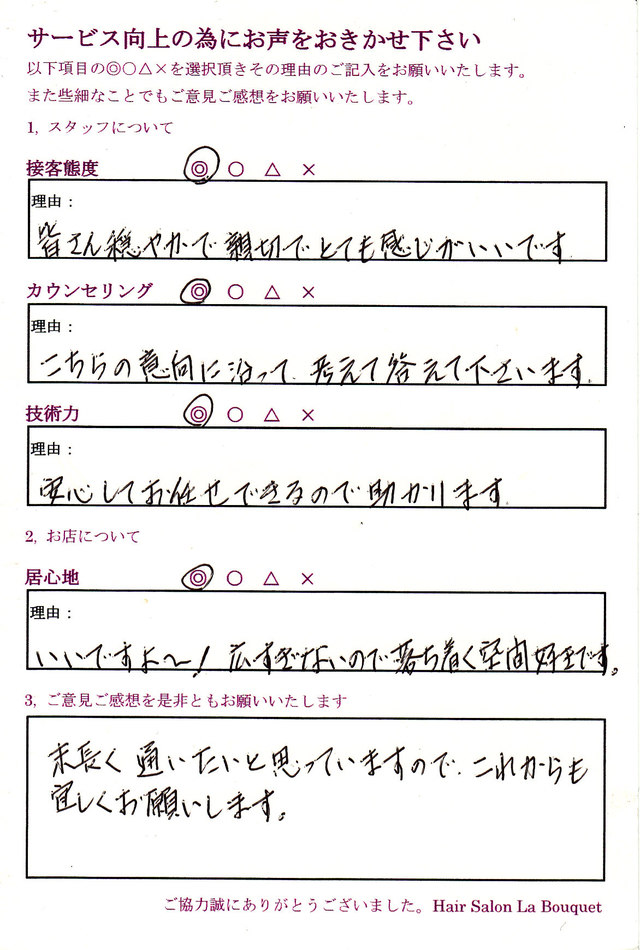 サービス向上の為にお声をおきかせ下さい
以下項目の◎○△×を選択頂きその理由のご記入をお願いいたします。
また些細なことでもご意見ご感想をお願いいたします。
1, スタッフについて
接客態度 ◎ ○ △ ×
理由：
皆さん穏やかで親切でとても感じがいいです
カウンセリング ◎ ○ △ ×
理由：
こちらの意向に沿って、考えて答えて下さいます。
技術力 ◎ ○ △ ×
理由：
安心してお任せできるので助かります
2, お店について
居心地 ◎ ○ △ ×
理由：
いいですよ〜! 広すぎないので落ち着く空間好きです。
3, ご意見ご感想を是非ともお願いいたします
末長く通いたいと思っていますので、これからも
宜しくお願いします。
ご協力誠にありがとうございました。Hair Salon La Bouquet